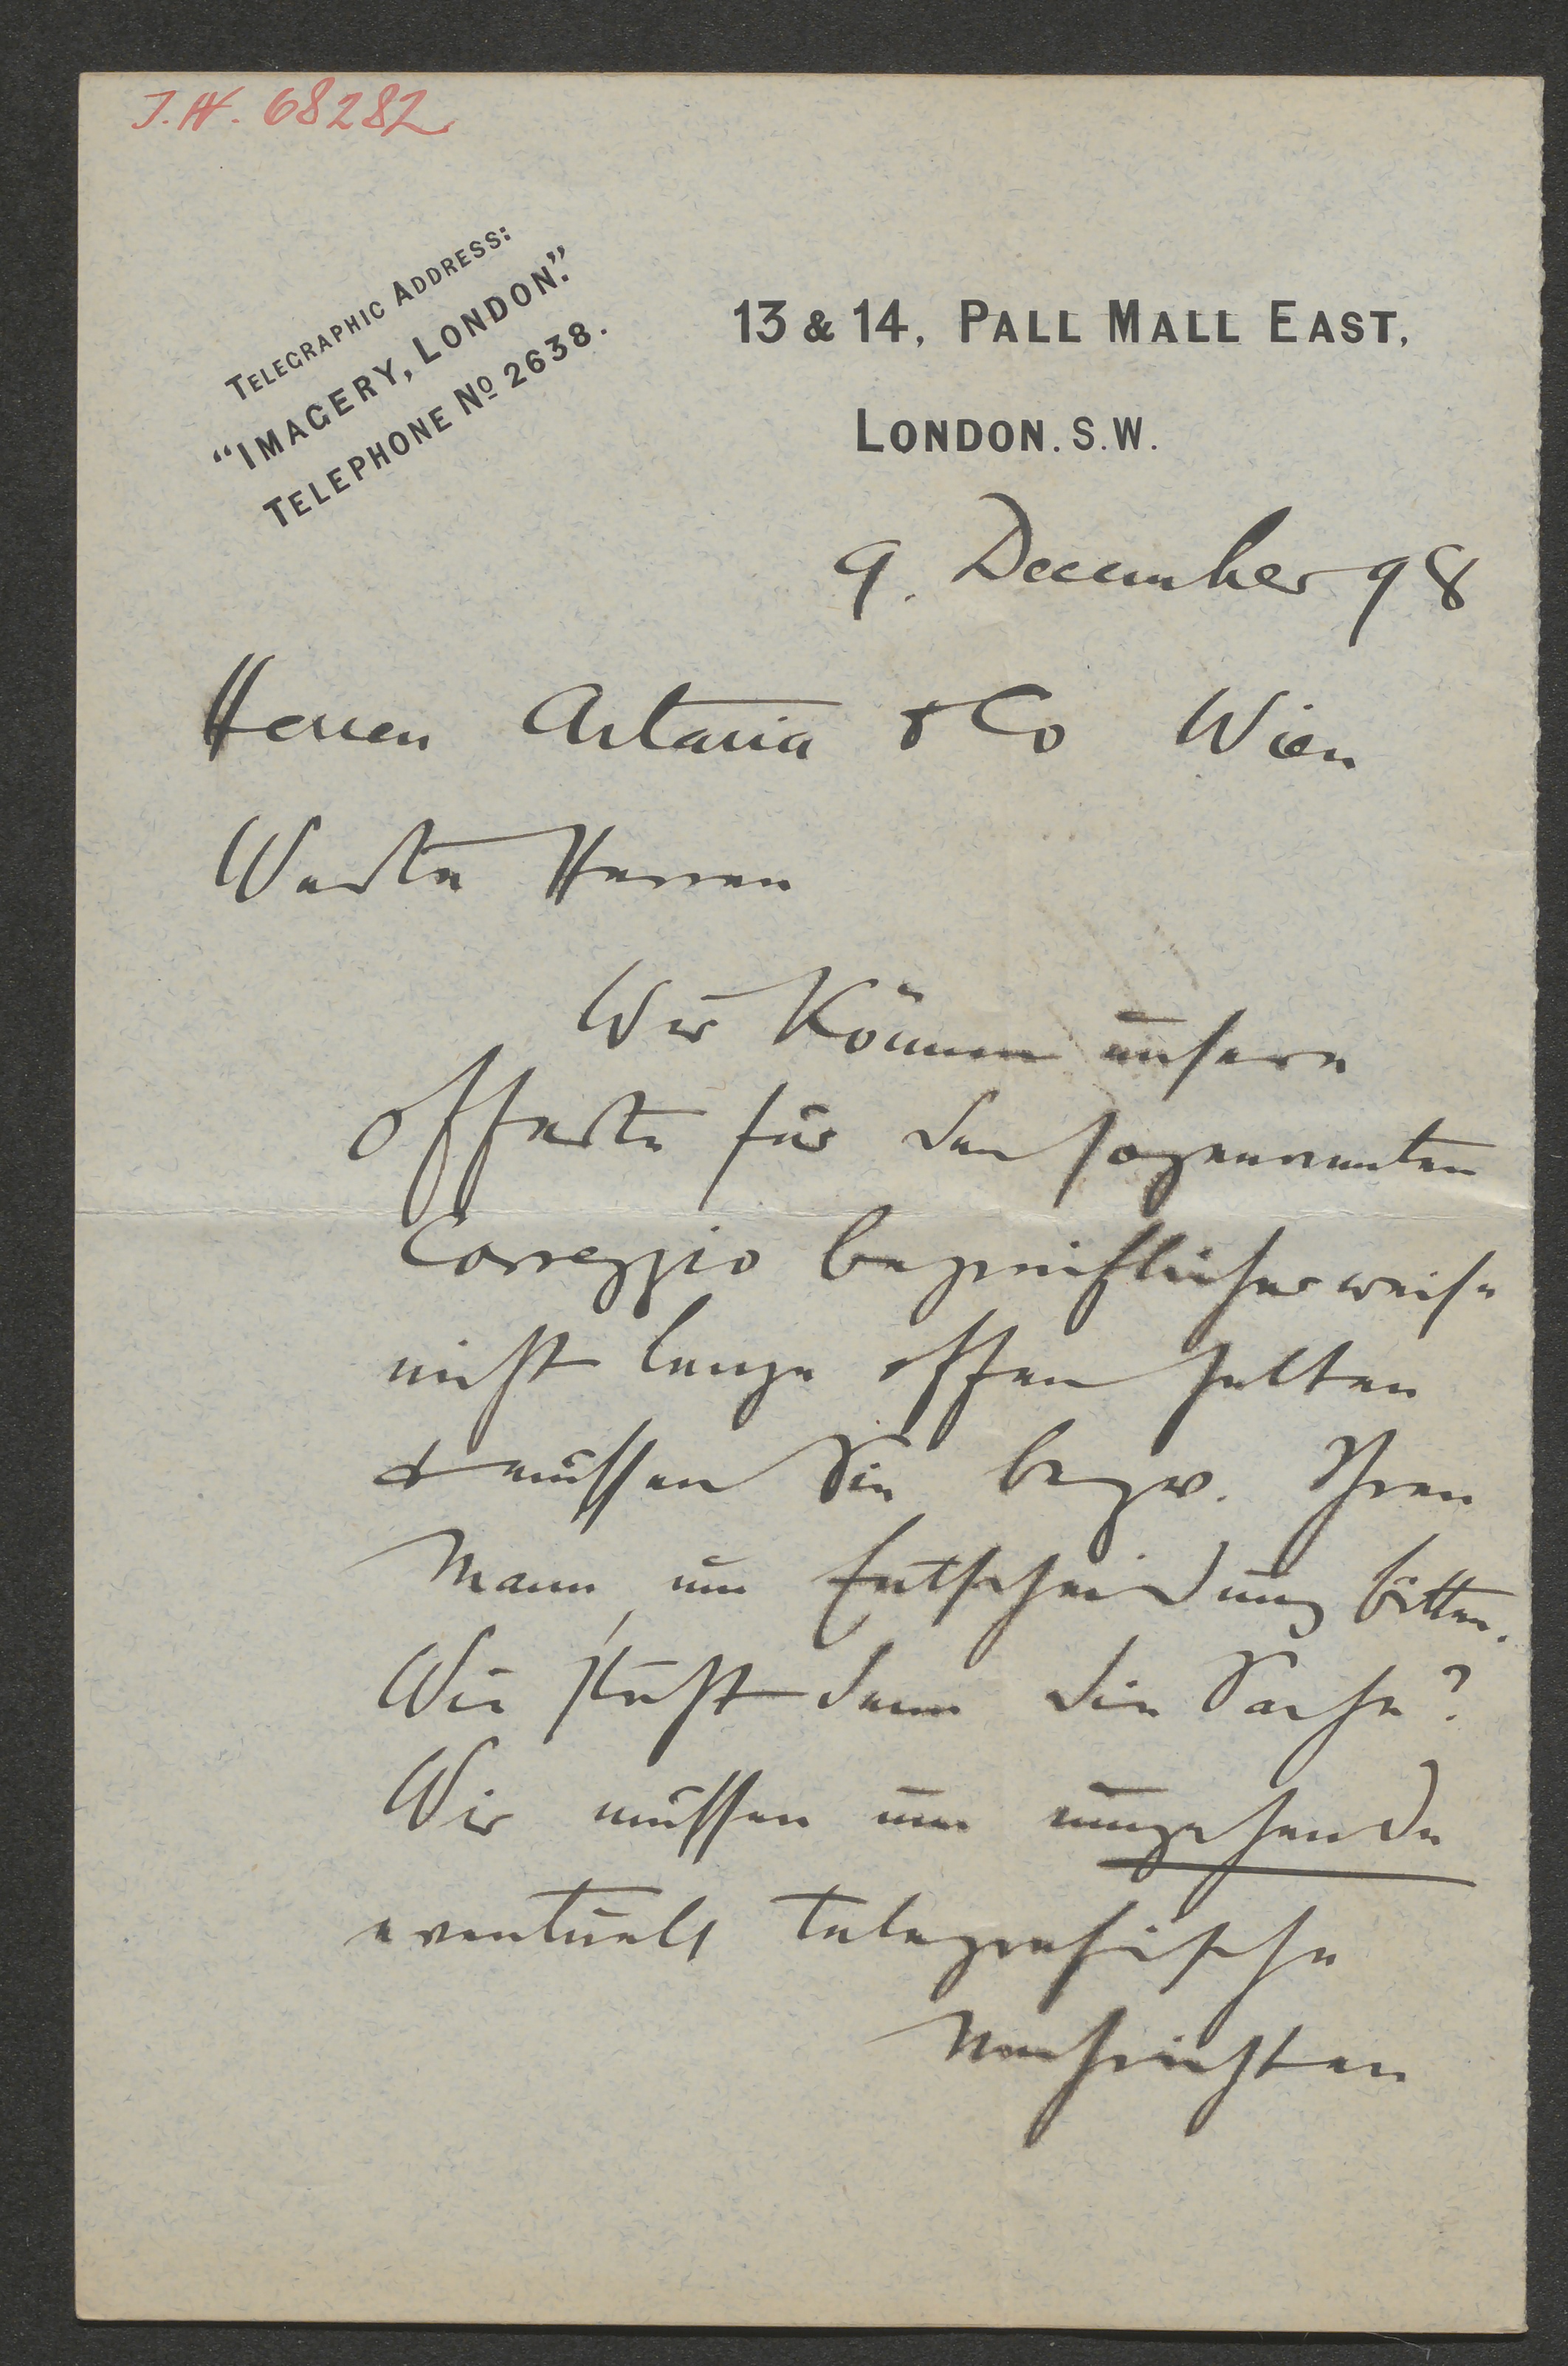 J.N. 68282
TELEGRAPHIC ADDRESS:
"IMAGERY, LONDON."
TELEPHONE No 2638.
13 & 14, PALL MALL EAST,
LONDON. S.W.
9. December 98
Herren Artaria & Co Wien
Werte Herren
Wir können unsere
Offerte für den sogenannten
Correggio begreiflicherweise
nicht lange offen halten
& müssen Sie bezw. Ihren
Mann, um Entscheidung bitten.
Wie steht denn die Sache?
Wir müssen um umgehende
eventuell telegrafische
Nachrichten